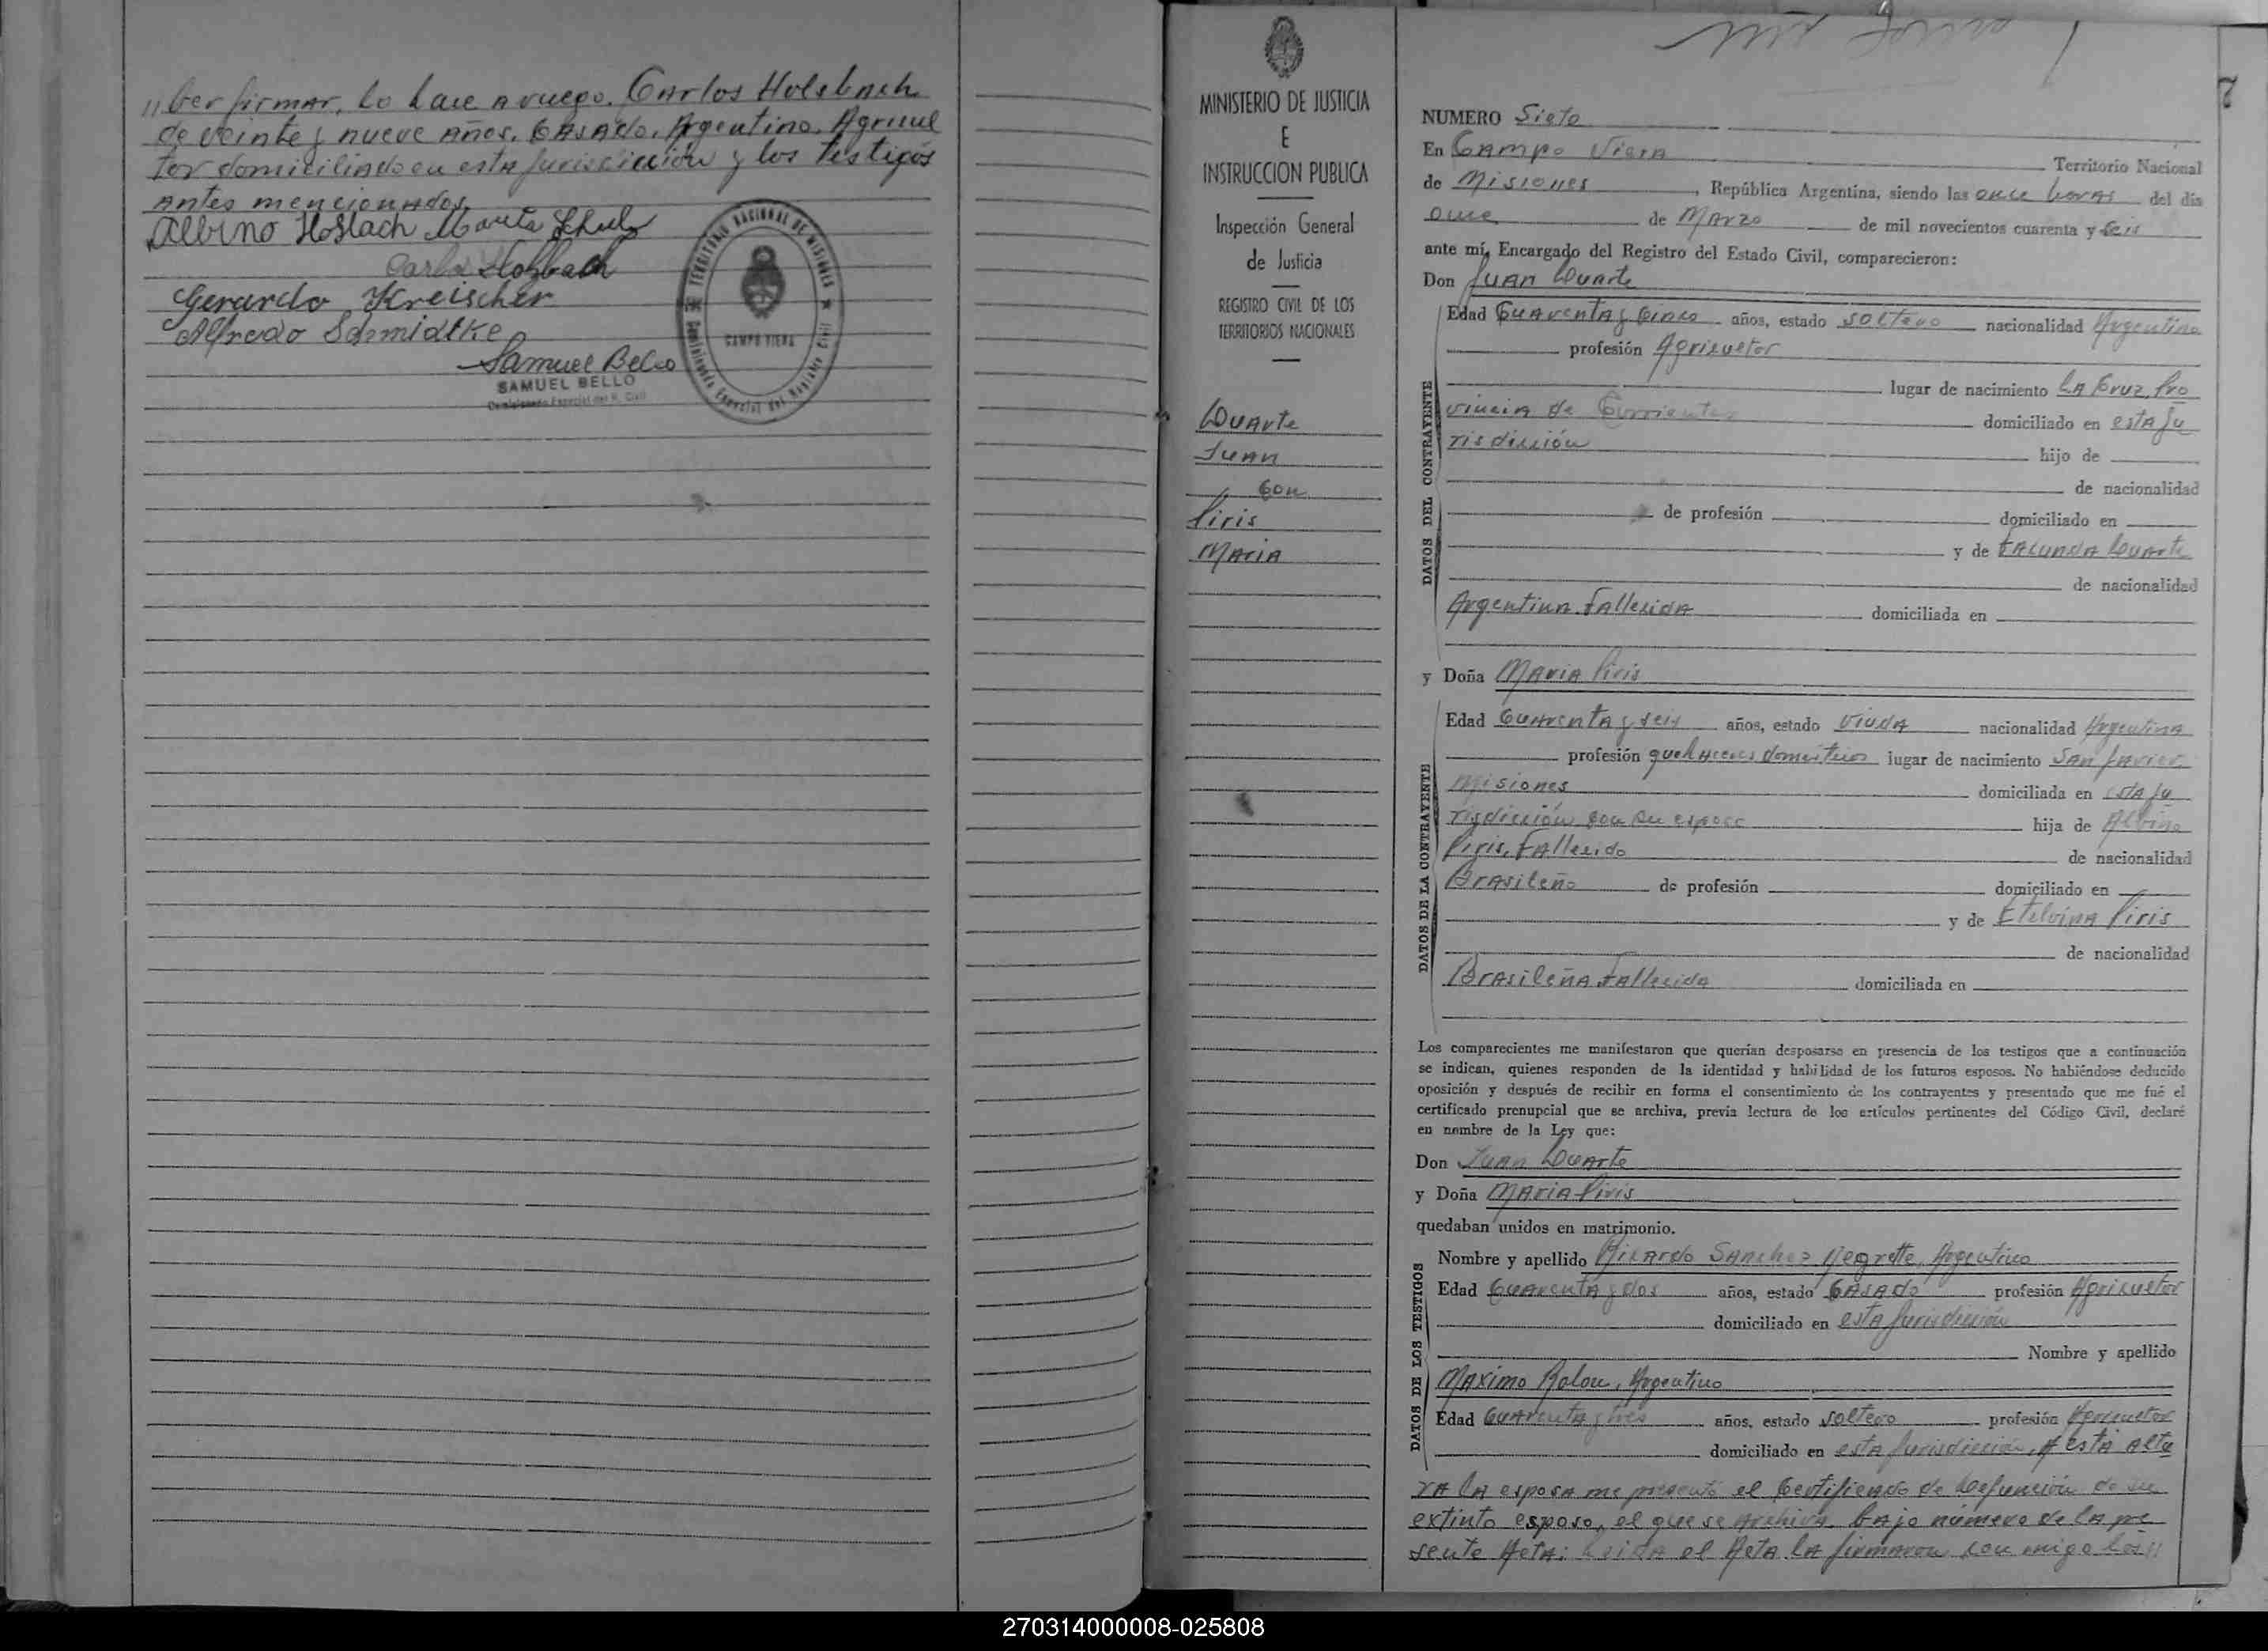 //ber firmar, lo hace a ruego, Carlos Holsbach
de veinte y nueve años, Casado, Argentino, Agricul
tor domiciliado en esta jurisdicción y los testigos
antes mencionados
Albino Hoslach Marta Schulz
Carlos Holsbach
Gerardo Kreischer
Alfredo Schmidtke
Samuel Bello
SAMUEL BELLO
Comisionado Especial del R. Civil
TERRITORIO NACIONAL DE MISIONES
CAMPO VIERA
Comisionado Especial del Registro Civil
MINISTERIO DE JUSTICIA
E
INSTRUCCION PUBLICA
Inspección General
de Justicia
REGISTRO CIVIL DE LOS
TERRITORIOS NACIONALES
Duarte
Juan
Con
Piris
Maria
7
NUMERO Siete
En Campo Viera Territorio Nacional
de Misiones, República Argentina, siendo las once horas del día
once de Marzo de mil novecientos cuarenta y seis
ante mí, Encargado del Registro del Estado Civil, comparecieron:
Don Juan Duarte
DATOS DEL CONTRAYENTE
Edad Cuarenta y Cinco años, estado soltero nacionalidad Argentino
profesión Agricultor
lugar de nacimiento La Cruz, Pro
vincia de Corrientes domiciliado en esta Ju
risdicción hijo de
de nacionalidad
de profesión domiciliado en
y de Facunda Duarte
de nacionalidad
Argentina Fallecida domiciliada en
y Doña Maria Piris
DATOS DE LA CONTRAYENTE
Edad Cuarenta y seis años, estado Viuda nacionalidad Argentina
profesión quehaceres domésticos lugar de nacimiento San Javier
Misiones domiciliada en esta Ju
risdicción con su esposo hija de Albino
Piris, Fallecido de nacionalidad
Brasileño de profesión domiciliado en
y de Etelvina Piris
de nacionalidad
Brasileña Fallecida domiciliada en
Los comparecientes me manifestaron que querían desposarse en presencia de los testigos que a continuación
se indican, quienes responden de la identidad y habilidad de los futuros esposos. No habiéndose deducido
oposición y después de recibir en forma el consentimiento de los contrayentes y presentado que me fué el
certificado prenupcial que se archiva, previa lectura de los artículos pertinentes del Código Civil, declaré
en nombre de la Ley que:
Don Juan Duarte
y Doña Maria Piris
quedaban unidos en matrimonio.
DATOS DE LOS TESTIGOS
Nombre y apellido Ricardo Sanchez Negrette, Argentino
Edad Cuarenta y dos años, estado Casado profesión Agricultor
domiciliado en esta Jurisdicción
Nombre y apellido
Maximo Rolon, Argentino
Edad Cuarenta y tres años, estado soltero profesión Agricultor
domiciliado en esta Jurisdicción, A esta altu
ra la esposa me presentó el Certificado de Defunción de su
extinto esposo, el que se Archiva, bajo número de la pre
sente Acta: Leida el Acta la firmaron con migo los//
270314000008-025808